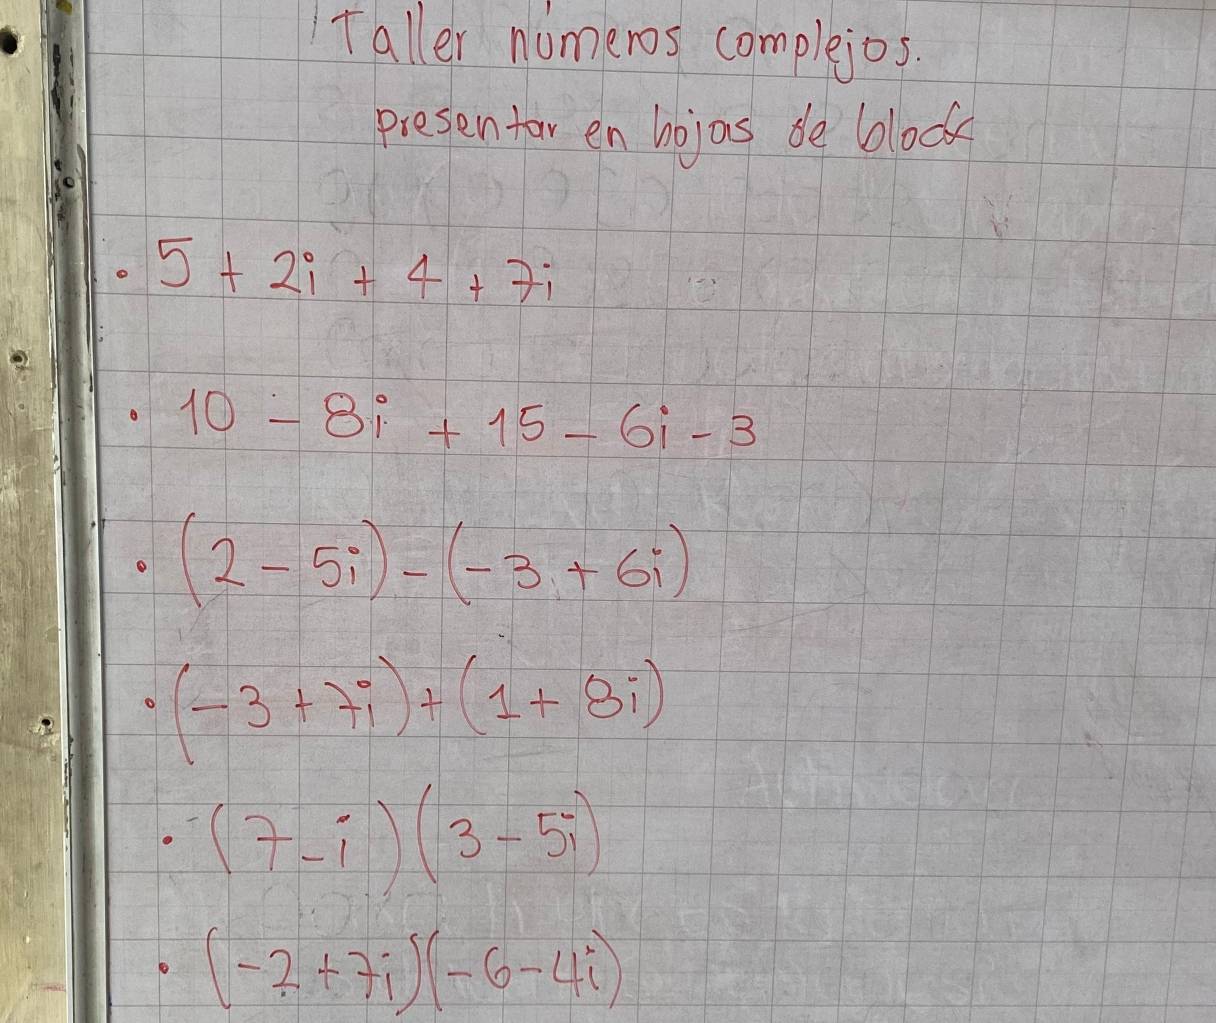 Taller números complejos.
presentar en hojas de block
• 5 + 2i + 4 + 7i
• 10 - 8i + 15 - 6i - 3
• (2 - 5i) - (-3 + 6i)
• (-3 + 7i) + (1 + 8i)
• (7 - i) (3 - 5i)
• (-2 + 7i)(-6 - 4i)